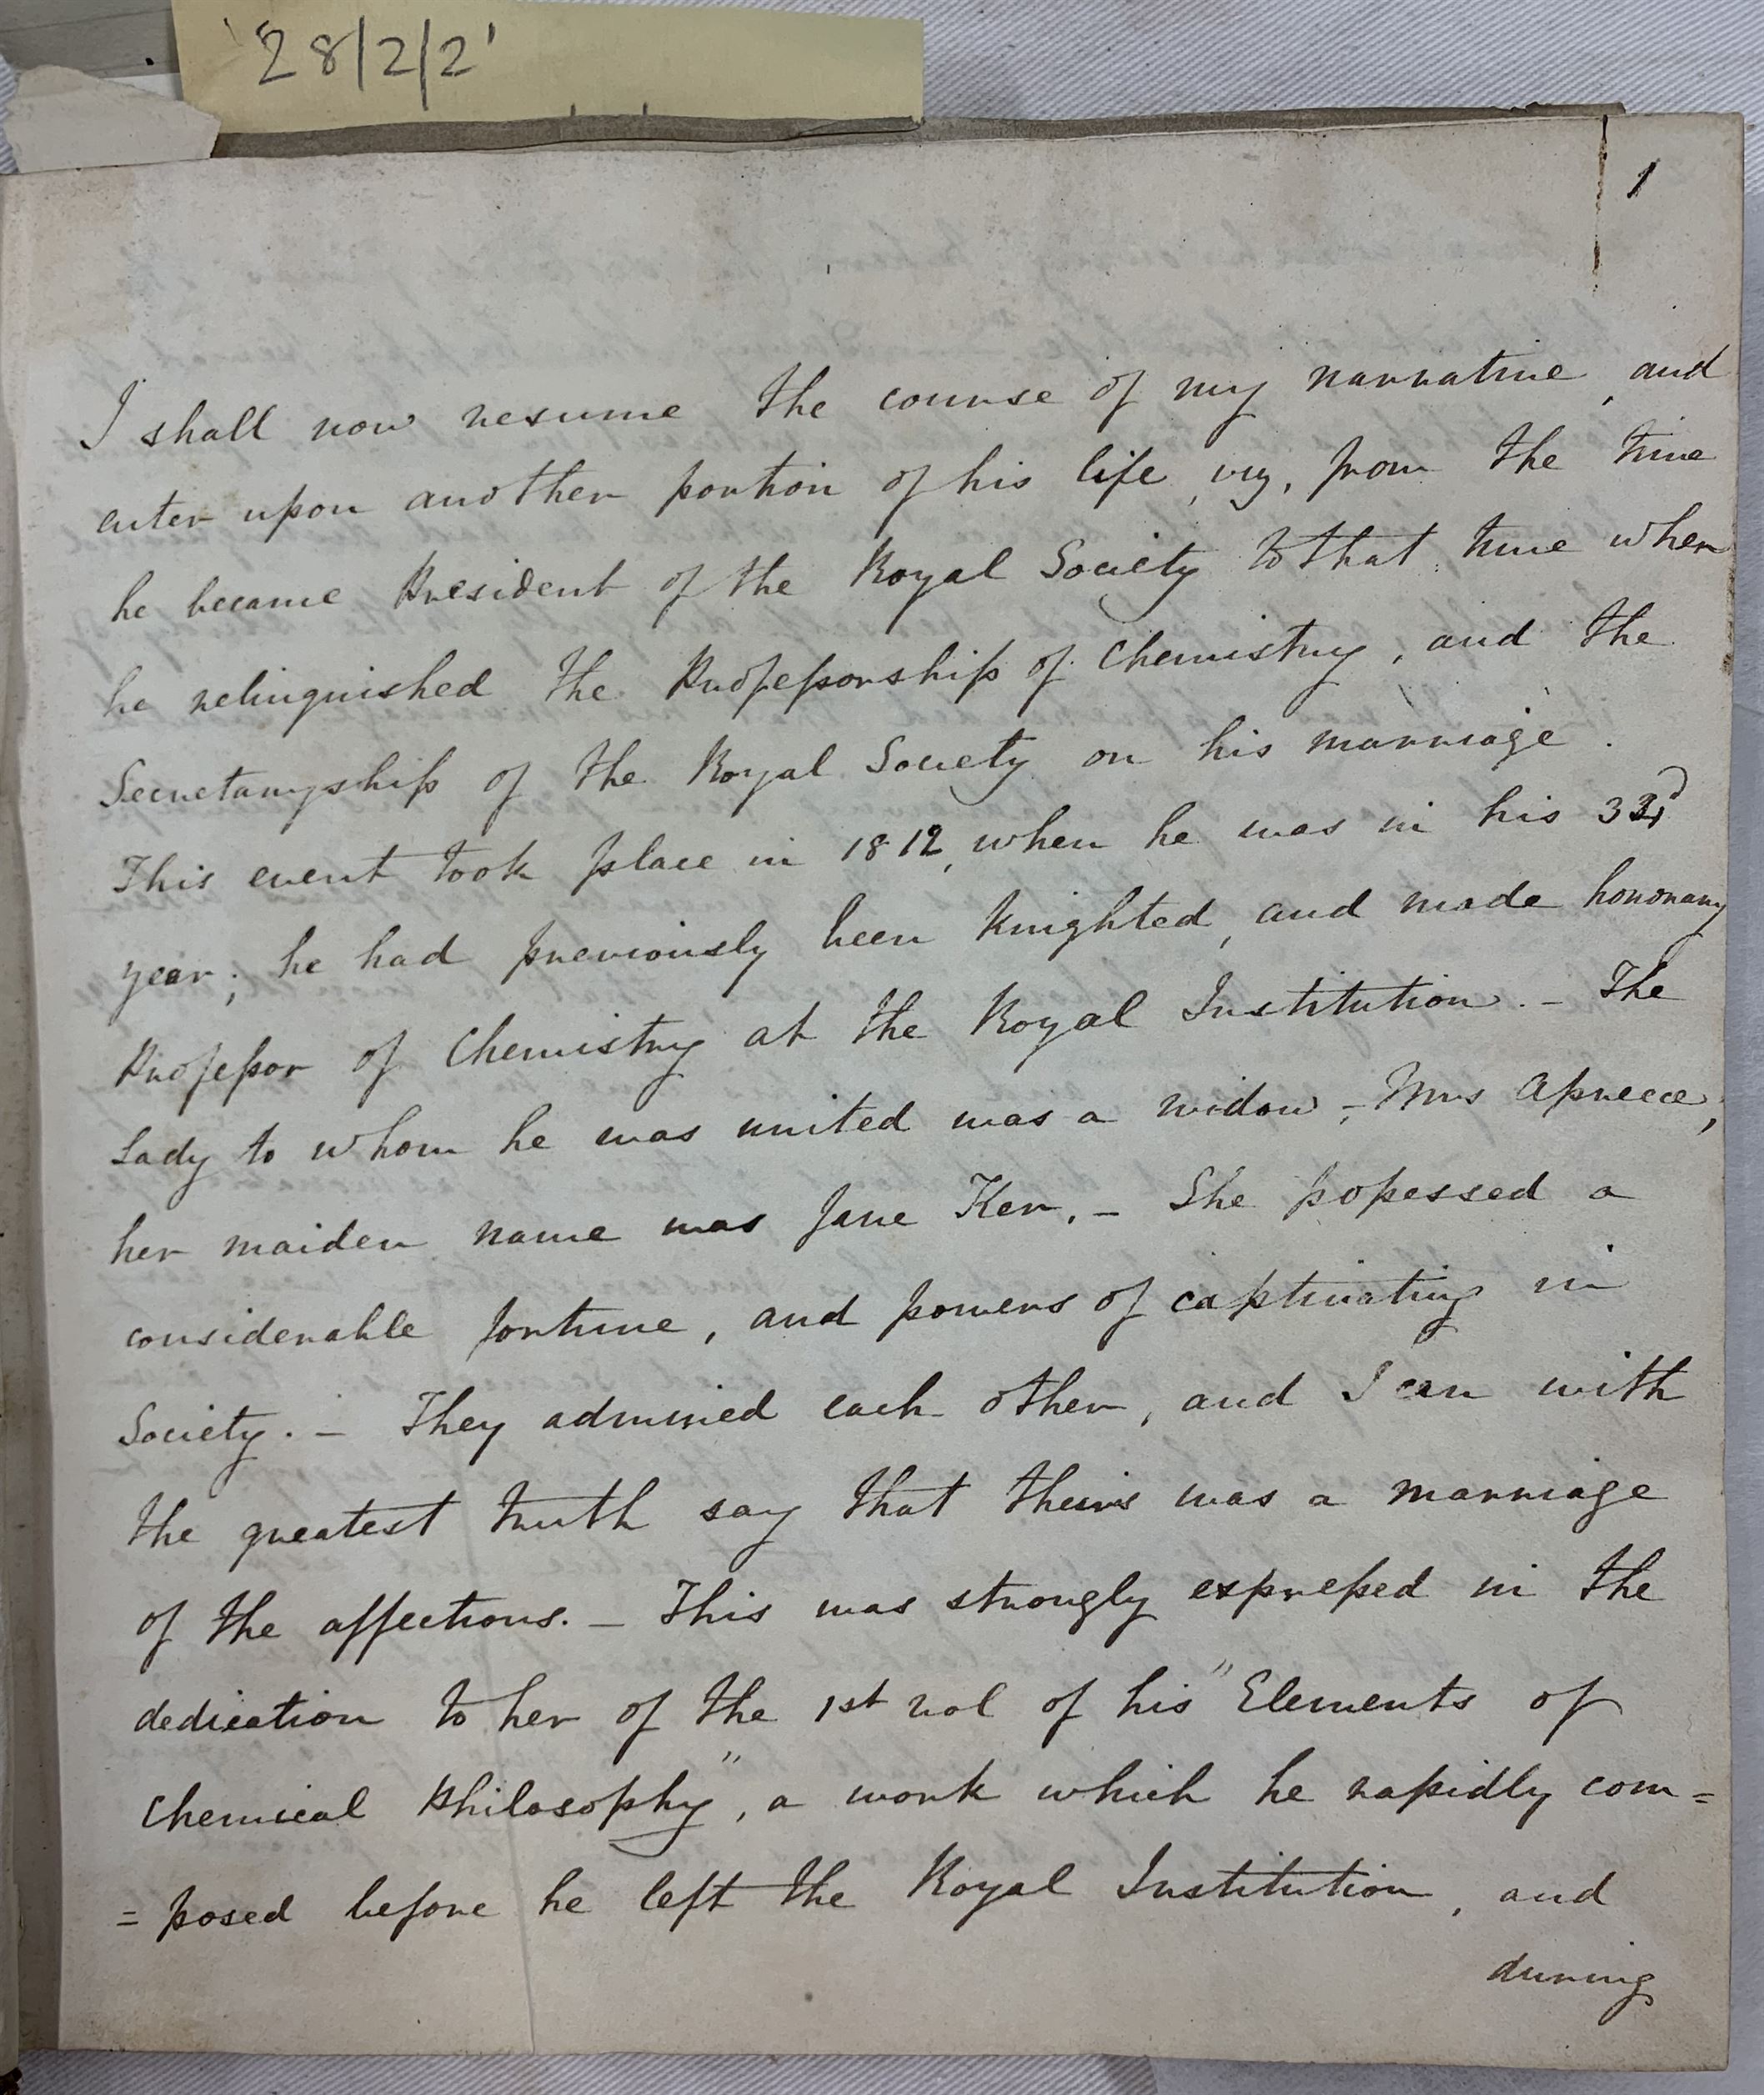 28/2/2
1
I shall now resume the course of my narrative, and
enter upon another portion of his life, viz, from the time
he became President of the Royal Society to that time when
he relinquished the Professorship of Chemistry, and the
Secretaryship of the Royal Society on his marriage.
This event took place in 1812, when he was in his 33d
year; he had previously been Knighted, and made honorary
Professor of Chemistry at the Royal Institution. – The
Lady to whom he was united was a widow, – Mrs Apreece,
her maiden name was Jane Ker. – She possessed a
considerable fortune, and powers of captivating in
Society. – They admired each other, and I can with
the greatest truth say that theirs was a marriage
of the affections. – This was strongly expressed in the
dedication to her of the 1st vol of his "Elements of
Chemical Philosophy", a work which he rapidly com=
=posed before he left the Royal Institution, and
during